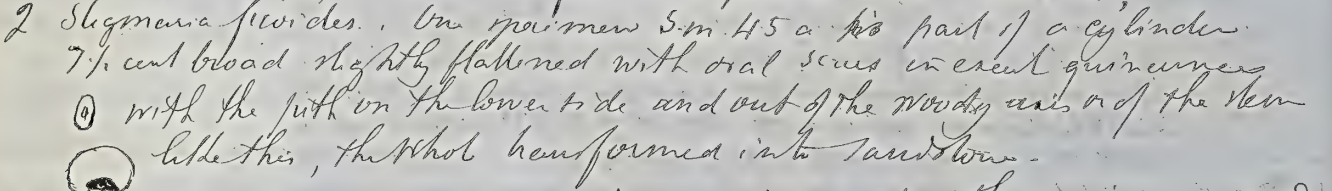 2 Stigmaria ficoides. One specimen S.m. 45 a is part of a cylinder
7 ½ cent broad slightly flattened with oval scars in exact quincunces
with the pith on the lower side and out of the woody axis or of the stem
like this, the whole transformed into sandstone.